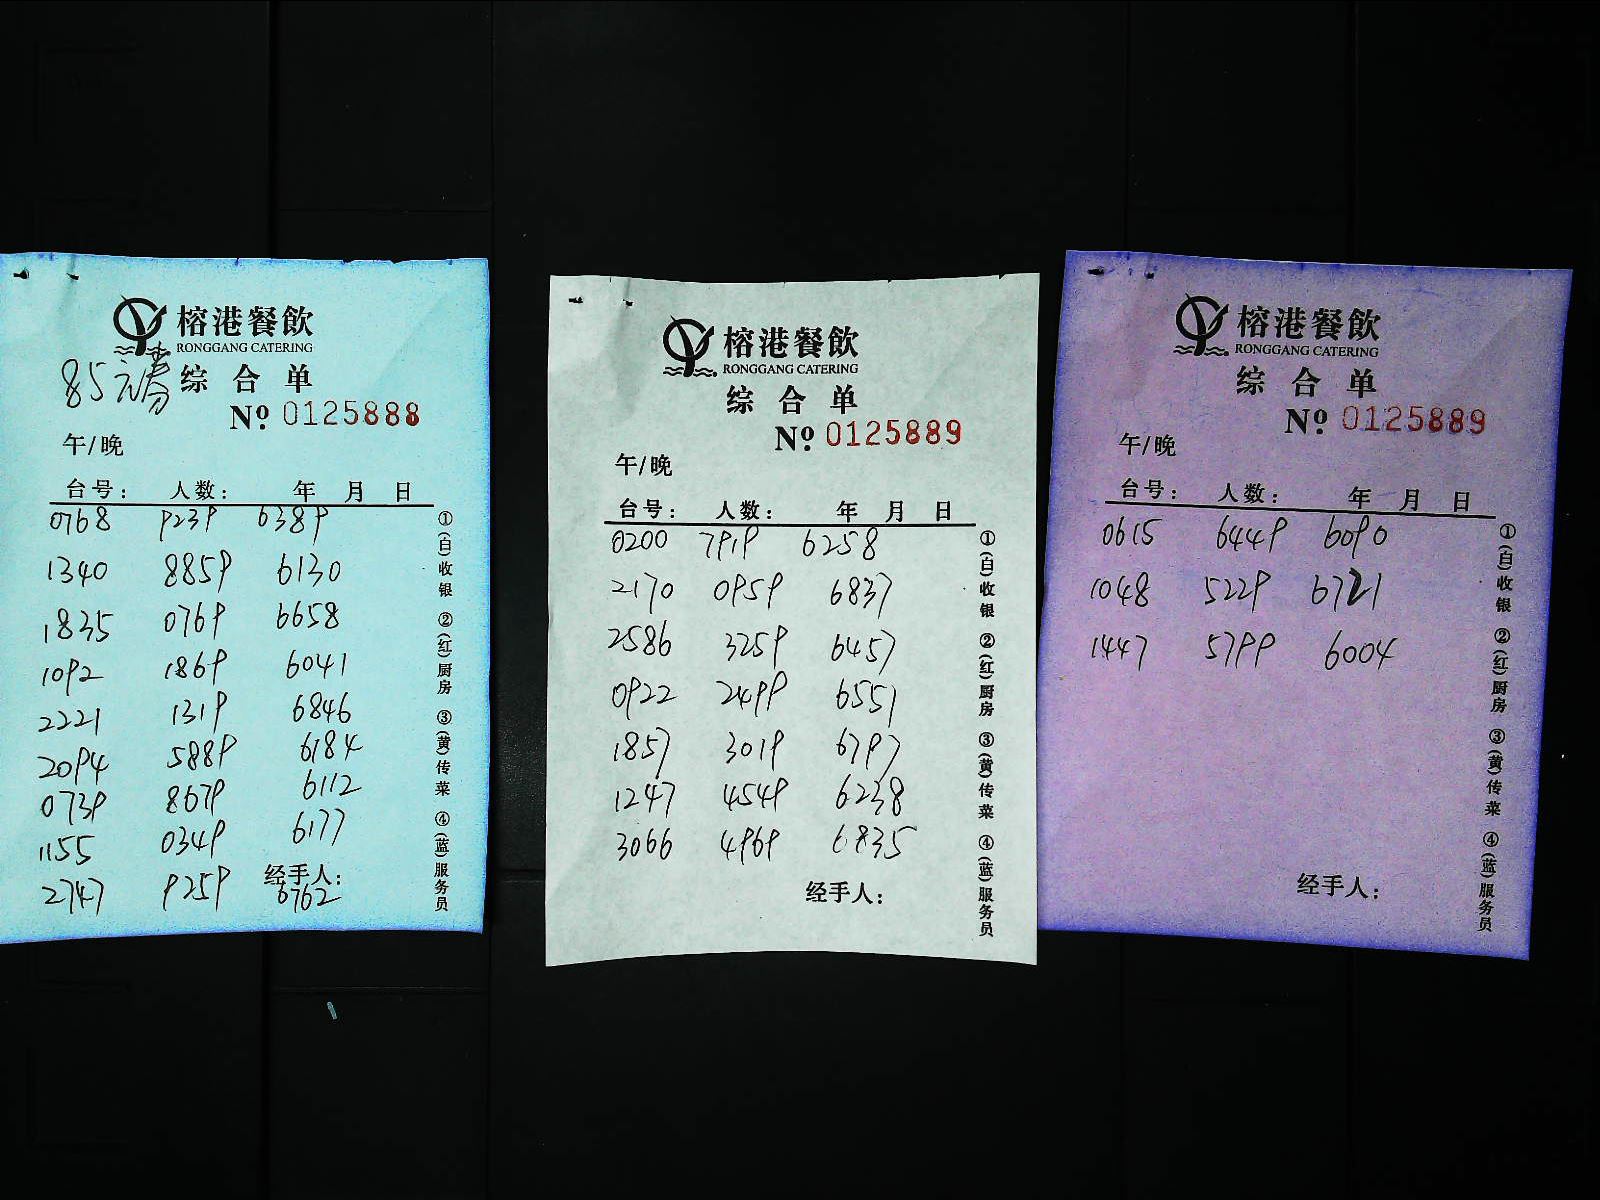 榕港餐飲
RONGGANG CATERING
85元券 综合单
Nº 0125888
午/晚
台号: 人数: 年 月 日
0768 9239 6389
1340 8859 6130
1835 0769 6658
1092 1869 6041
2221 1319 6846
2094 5889 6184
0739 8679 6112
1155 0349 6177
经手人:
2747 9259 6762
①(白)收银 ②(红)厨房 ③(黄)传菜 ④(蓝)服务员
榕港餐飲
RONGGANG CATERING
综合单
Nº 0125889
午/晚
台号: 人数: 年 月 日
0200 7919 6258
2170 0959 6837
2586 3259 6457
0922 2499 6551
1857 3019 6797
1247 4549 6238
3066 4969 6835
经手人:
①(白)收银 ②(红)厨房 ③(黄)传菜 ④(蓝)服务员
榕港餐飲
RONGGANG CATERING
综合单
Nº 0125889
午/晚
台号: 人数: 年 月 日
0615 6449 6090
1048 5229 6721
1447 5799 6004
经手人:
①(白)收银 ②(红)厨房 ③(黄)传菜 ④(蓝)服务员